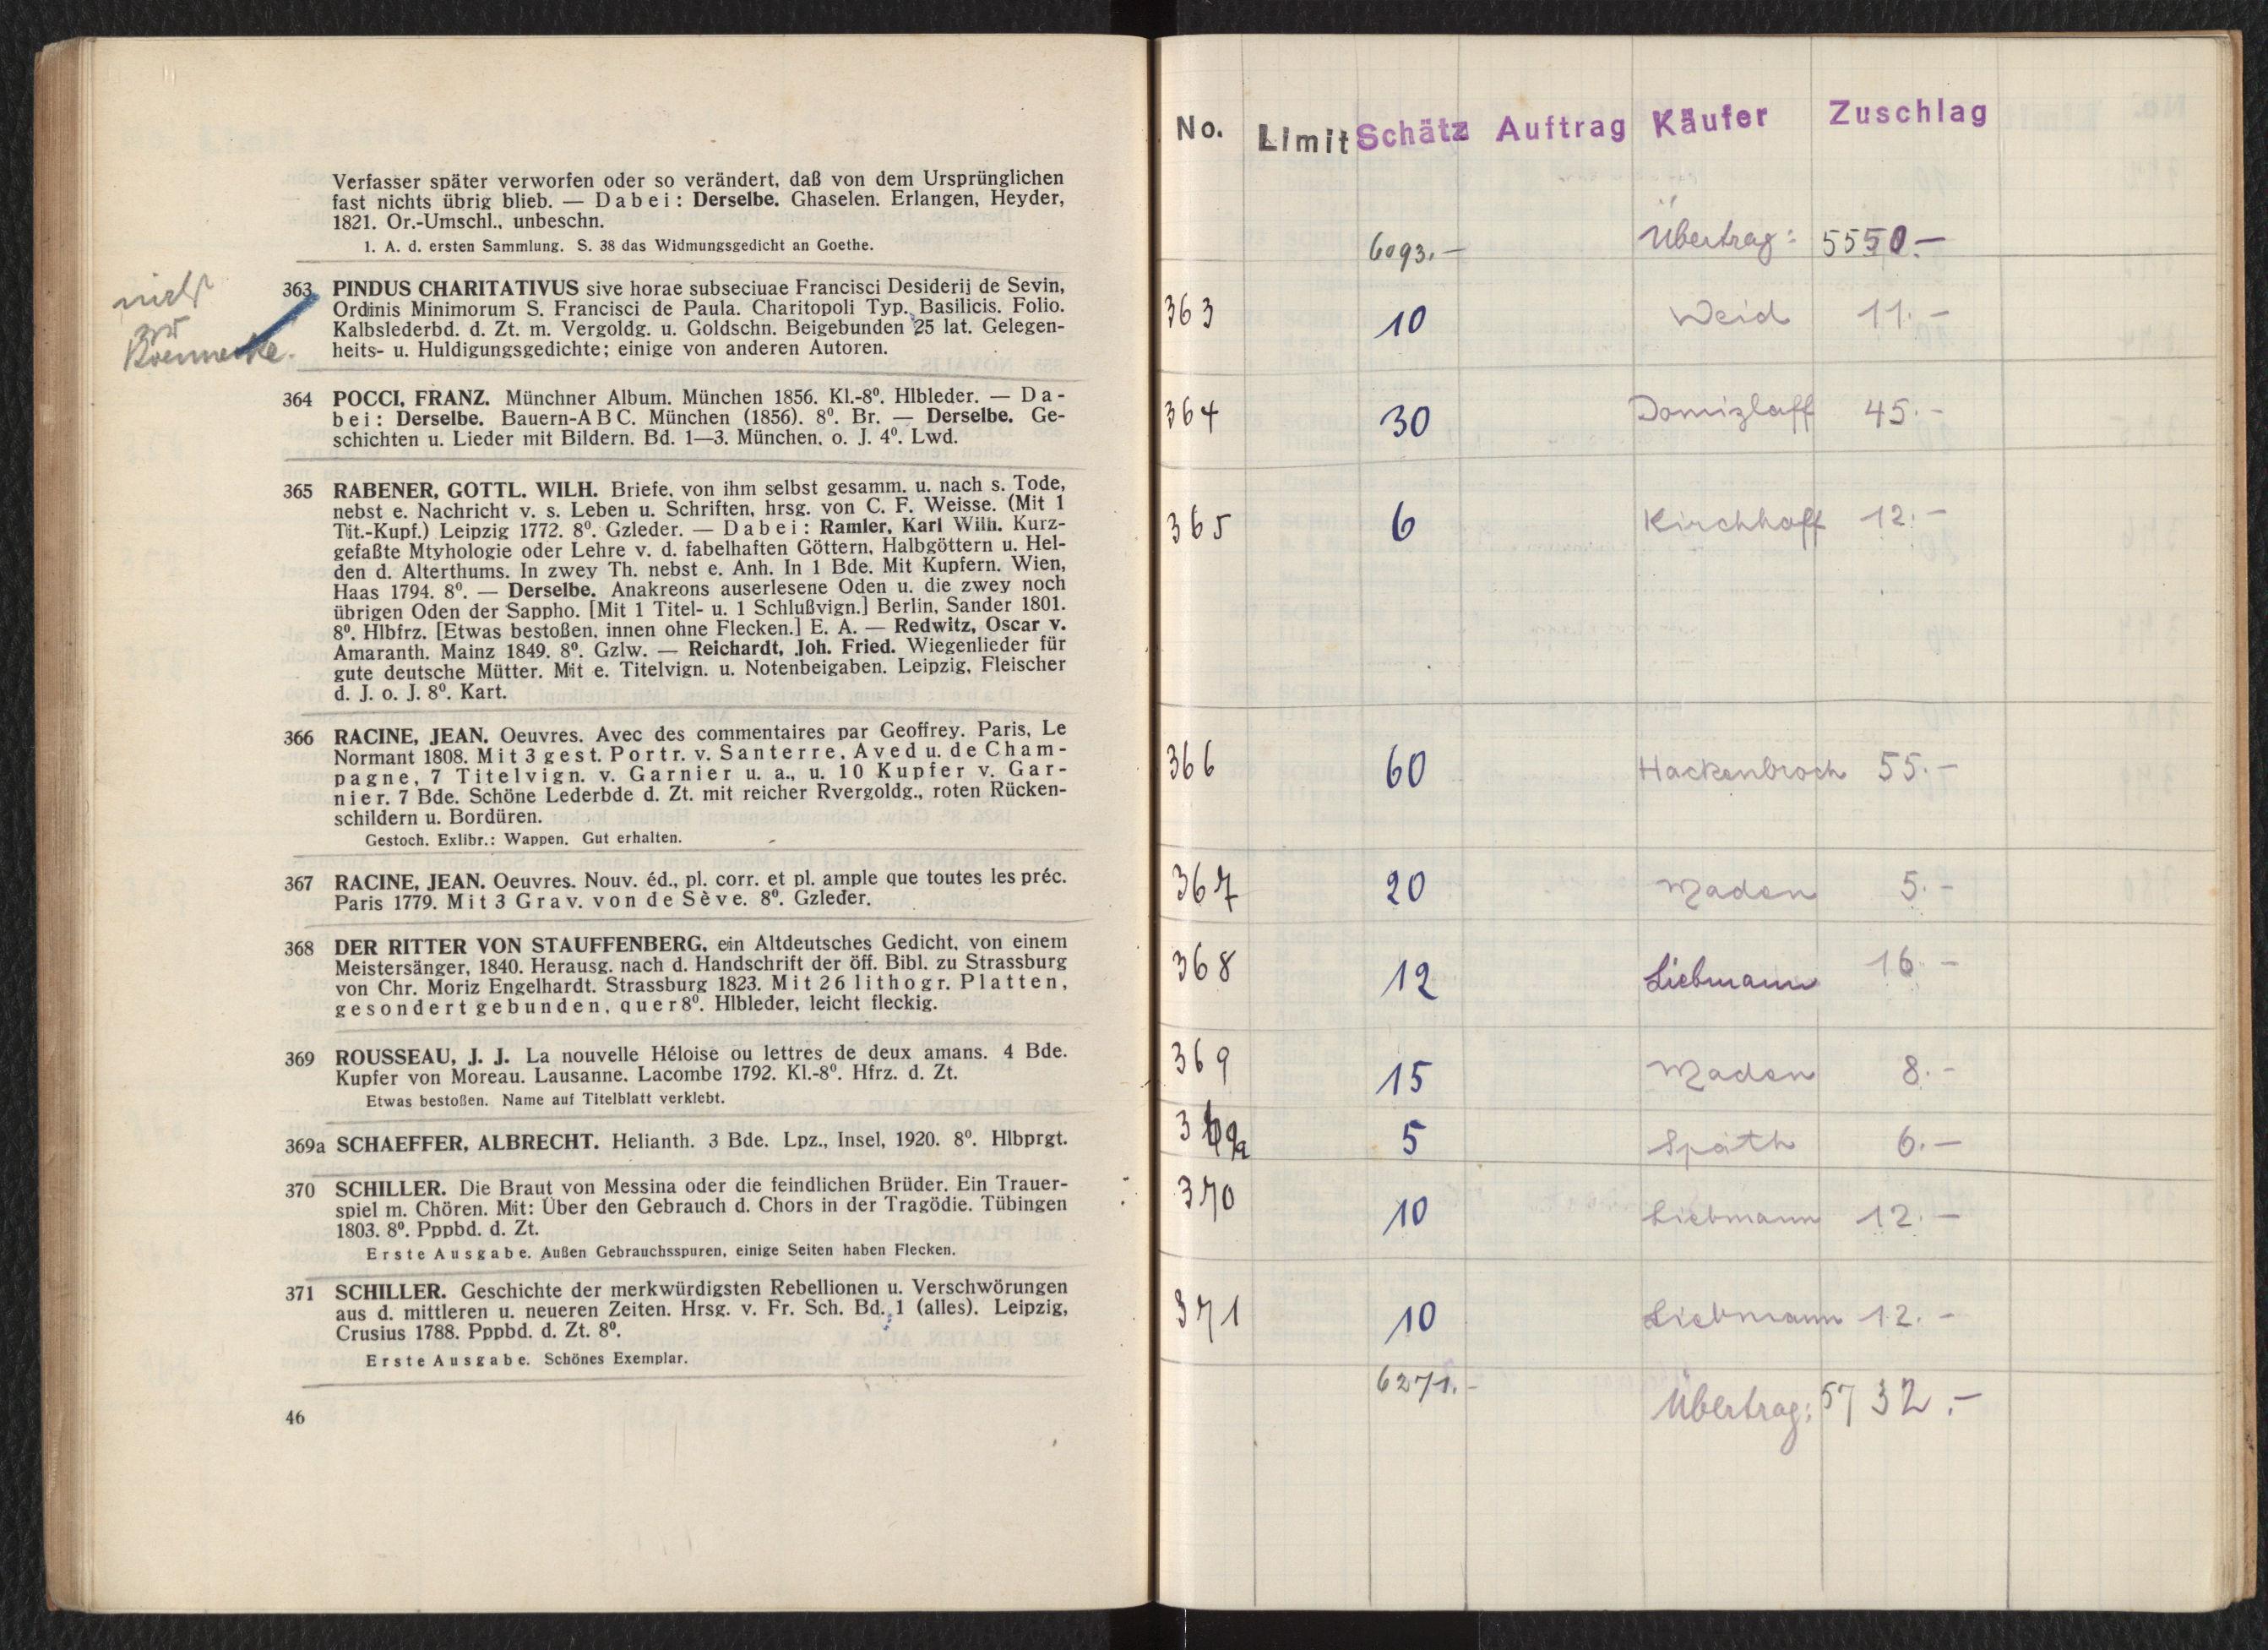 Verfasser später verworfen oder so verändert, daß von dem Ursprünglichen
fast nichts übrig blieb. — Dabei: Derselbe. Ghaselen. Erlangen, Heyder,
1821. Or.-Umschl., unbeschn.
1. A. d. ersten Sammlung. S. 38 das Widmungsgedicht an Goethe.
nicht
zu
363 PINDUS CHARITATIVUS sive horae subseciuae Francisci Desiderij de Sevin,
Ordinis Minimorum S. Francisci de Paula. Charitopoli Typ. Basilicis. Folio.
Kalbslederbd. d. Zt. m. Vergoldg. u. Goldschn. Beigebunden 25 lat. Gelegen-
heits- u. Huldigungsgedichte; einige von anderen Autoren.
364 POCCI, FRANZ. Münchner Album. München 1856. Kl.-8⁰. Hlbleder. — Da-
bei: Derselbe. Bauern-ABC. München (1856). 8⁰. Br. — Derselbe. Ge-
schichten u. Lieder mit Bildern. Bd. 1—3. München, o. J. 4⁰. Lwd.
365 RABENER, GOTTL. WILH. Briefe, von ihm selbst gesamm. u. nach s. Tode,
nebst e. Nachricht v. s. Leben u. Schriften, hrsg. von C. F. Weisse. (Mit 1
Tit.-Kupf.) Leipzig 1772. 8⁰. Gzleder. — Dabei: Ramler, Karl Wilh. Kurz-
gefaßte Mtyhologie oder Lehre v. d. fabelhaften Göttern, Halbgöttern u. Hel-
den d. Alterthums. In zwey Th. nebst e. Anh. In 1 Bde. Mit Kupfern. Wien,
Haas 1794. 8⁰. — Derselbe. Anakreons auserlesene Oden u. die zwey noch
übrigen Oden der Sappho. [Mit 1 Titel- u. 1 Schlußvign.] Berlin, Sander 1801.
8⁰. Hlbfrz. [Etwas bestoßen, innen ohne Flecken.] E. A. — Redwitz, Oscar v.
Amaranth. Mainz 1849. 8⁰. Gzlw. — Reichardt, Joh. Fried. Wiegenlieder für
gute deutsche Mütter. Mit e. Titelvign. u. Notenbeigaben. Leipzig, Fleischer
d. J. o. J. 8⁰. Kart.
366 RACINE, JEAN. Oeuvres. Avec des commentaires par Geoffrey. Paris, Le
Normant 1808. Mit 3 gest. Portr. v. Santerre, Aved u. de Cham-
pagne, 7 Titelvign. v. Garnier u. a., u. 10 Kupfer v. Gar-
nier. 7 Bde. Schöne Lederbde d. Zt. mit reicher Rvergoldg., roten Rücken-
schildern u. Bordüren.
Gestoch. Exlibr.: Wappen. Gut erhalten.
367 RACINE, JEAN. Oeuvres. Nouv. éd., pl. corr. et pl. ample que toutes les préc.
Paris 1779. Mit 3 Grav. von de Sève. 8⁰. Gzleder.
368 DER RITTER VON STAUFFENBERG, ein Altdeutsches Gedicht, von einem
Meistersänger, 1840. Herausg. nach d. Handschrift der öff. Bibl. zu Strassburg
von Chr. Moriz Engelhardt. Strassburg 1823. Mit 26 lithogr. Platten,
gesondert gebunden, quer 8⁰. Hlbleder, leicht fleckig.
369 ROUSSEAU, J. J. La nouvelle Héloise ou lettres de deux amans. 4 Bde.
Kupfer von Moreau. Lausanne. Lacombe 1792. Kl.-8⁰. Hfrz. d. Zt.
Etwas bestoßen. Name auf Titelblatt verklebt.
369a SCHAEFFER, ALBRECHT. Helianth. 3 Bde. Lpz., Insel, 1920. 8⁰. Hlbprgt.
370 SCHILLER. Die Braut von Messina oder die feindlichen Brüder. Ein Trauer-
spiel m. Chören. Mit: Über den Gebrauch d. Chors in der Tragödie. Tübingen
1803. 8⁰. Pppbd. d. Zt.
Erste Ausgabe. Außen Gebrauchsspuren, einige Seiten haben Flecken.
371 SCHILLER. Geschichte der merkwürdigsten Rebellionen u. Verschwörungen
aus d. mittleren u. neueren Zeiten. Hrsg. v. Fr. Sch. Bd. 1 (alles). Leipzig,
Crusius 1788. Pppbd. d. Zt. 8⁰.
Erste Ausgabe. Schönes Exemplar.
46
No. Limit Schätz Auftrag Käufer Zuschlag
6093.— Übertrag: 5550.—
363 10 Weid 11.—
364 30 Domizlaff 45.—
365 6 Kirchhoff 12.—
366 60 Hackenbroch 55.—
367 20 Maden 5.—
368 12 Liebmann 16.—
369 15 Maden 8.—
369a 5 Späth 6.—
370 10 Liebmann 12.—
371 10 Liebmann 12.—
6271.— Übertrag: 5732.—